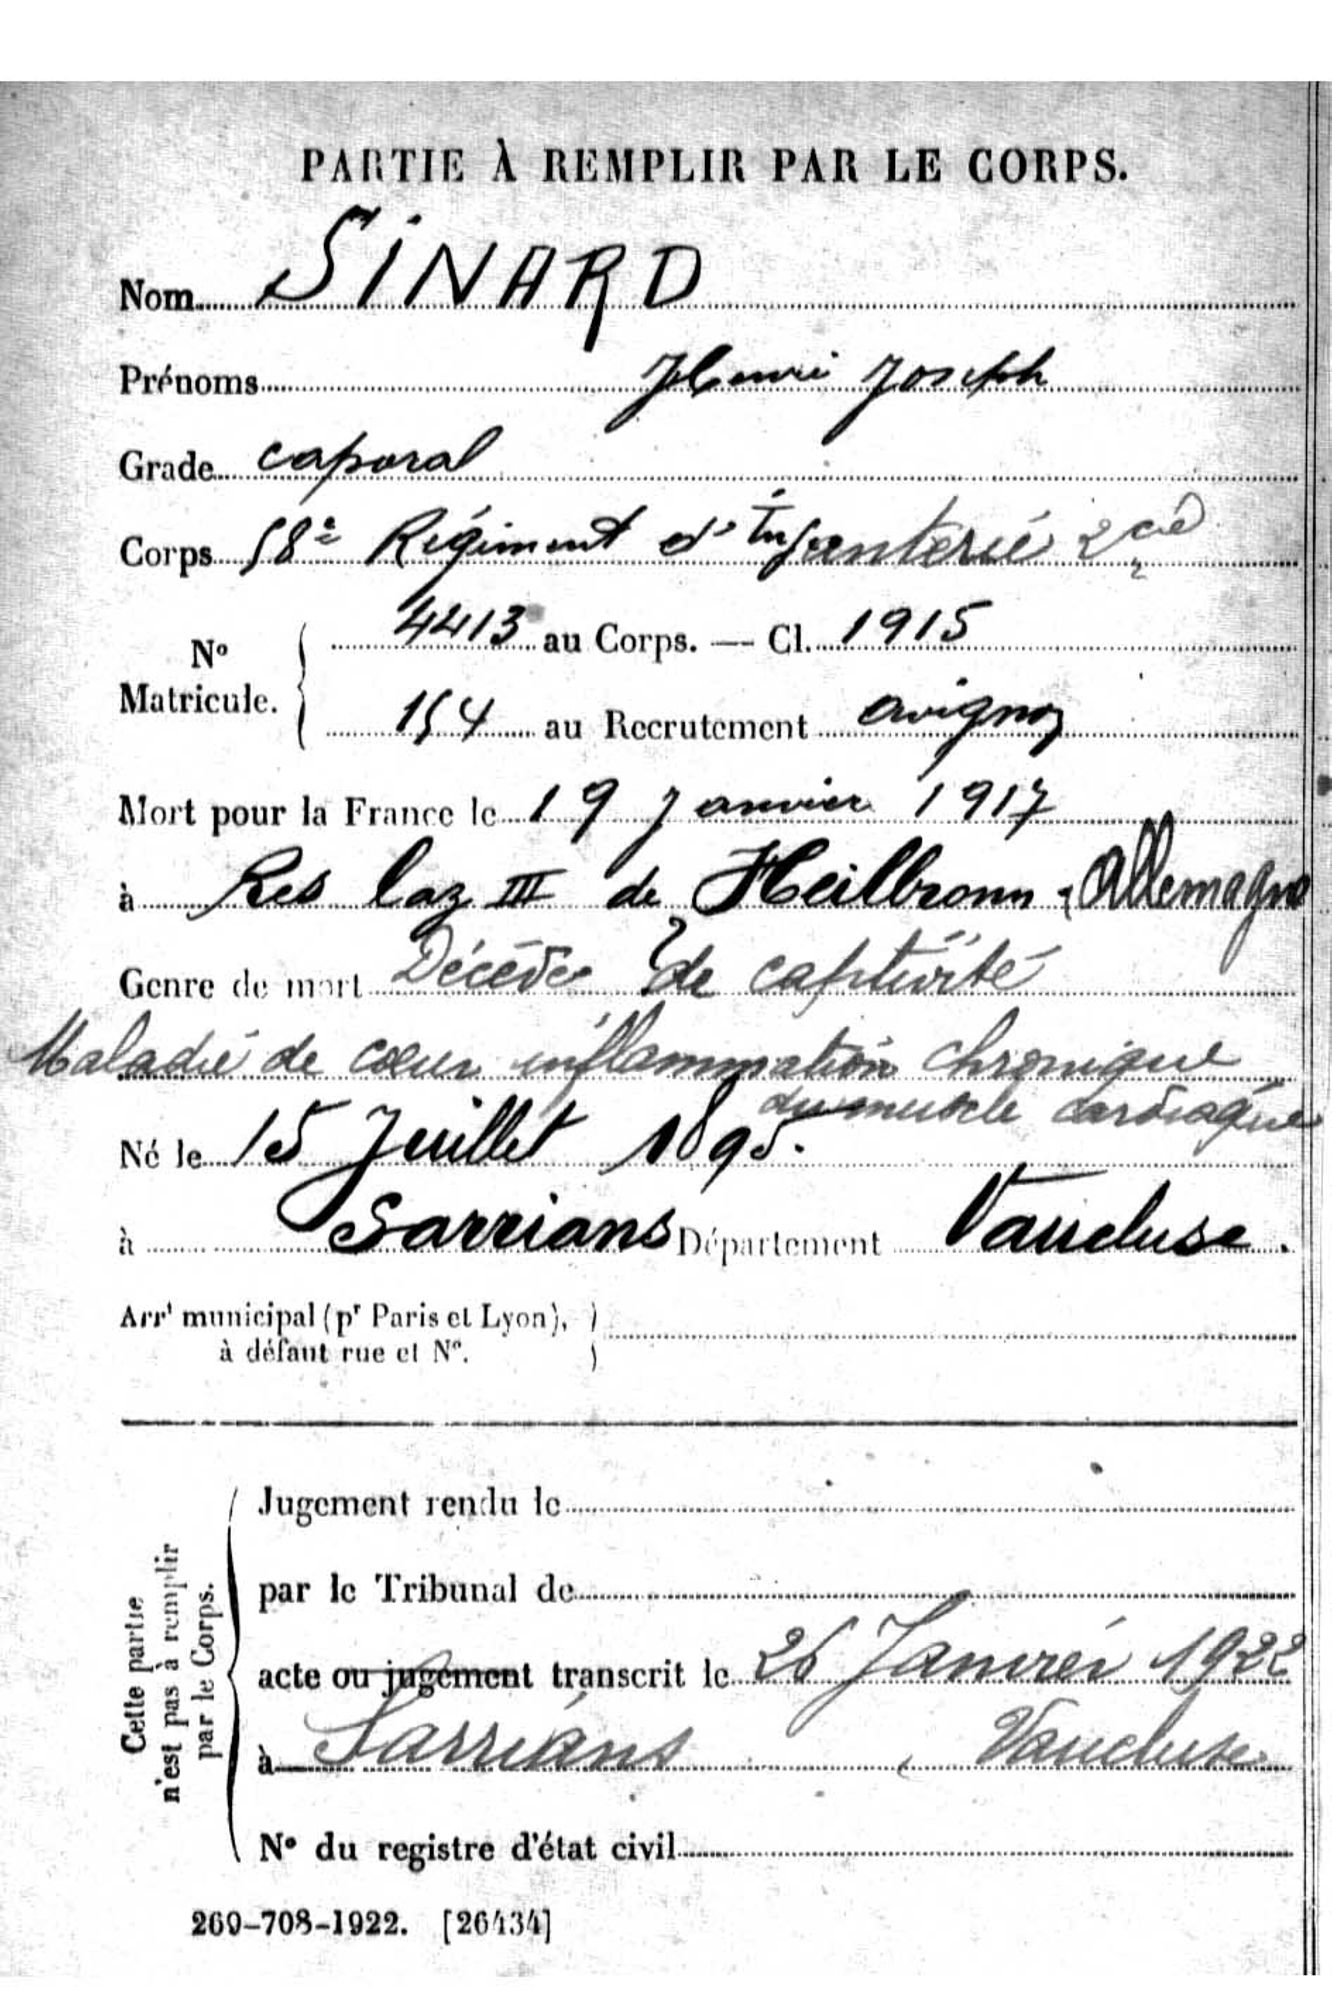 PARTIE À REMPLIR PAR LE CORPS.
Nom SINARD
Prénoms Henri Joseph
Grade caporal
Corps 58e Régiment d'Infanterie 2 cie
4413 au Corps. — Cl. 1915
No
Matricule.
154 au Recrutement avignon
Mort pour la France le 19 Janvier 1917
à Res laz III de Heilbronn Allemagne
Genre de mort Décédé de captivité
Maladie de cœur inflammation chronique
du muscle cardiaque
Né le 15 Juillet 1895.
à Sarrians Département Vaucluse.
Arrt municipal (pr Paris et Lyon),
à défaut rue et No.
Cette partie
n'est pas à remplir
par le Corps.
Jugement rendu le
par le Tribunal de
acte ou jugement transcrit le 26 Janvier 1922
à Sarrians Vaucluse
No du registre d'état civil
269-708-1922. [26434]